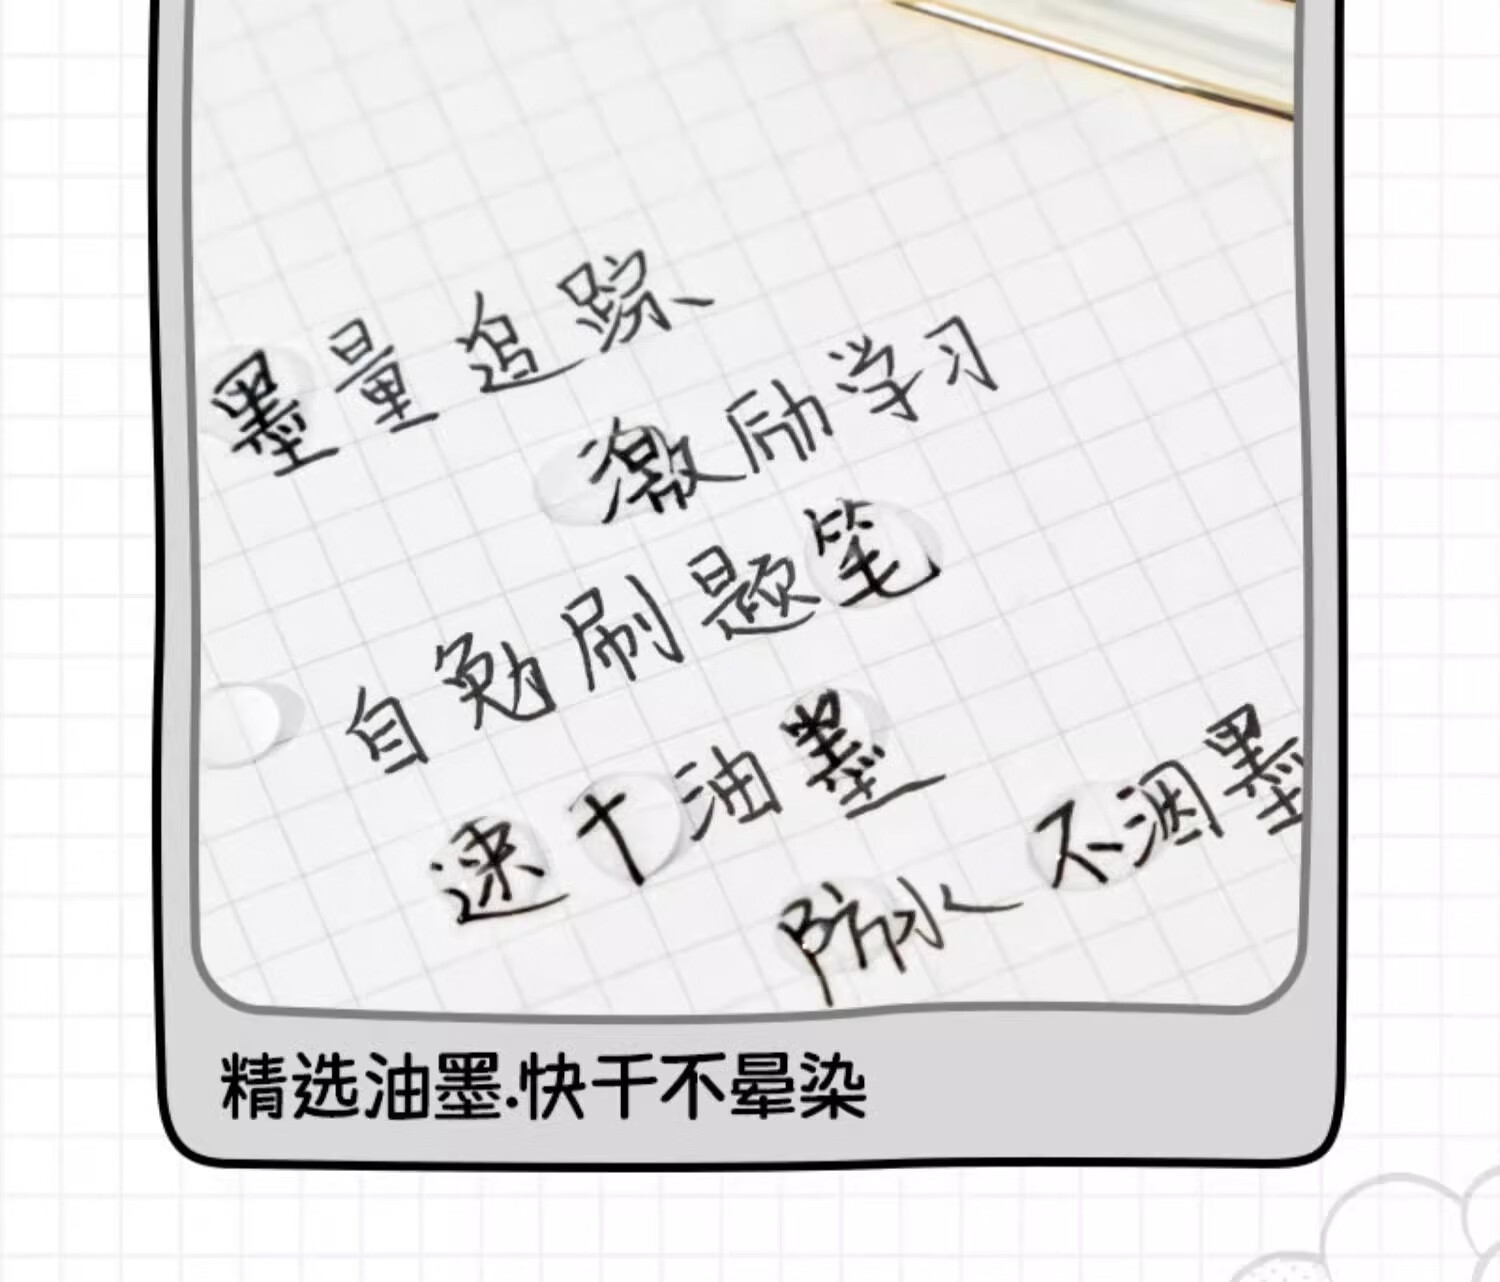 墨量追踪、
激励学习
自勉刷题笔
速干油墨
防水 不洇墨
精选油墨.快干不晕染